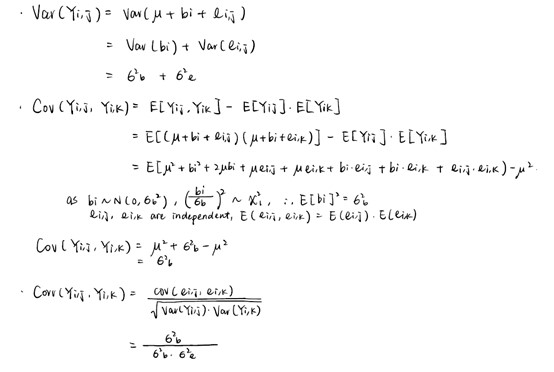 · Var(Yi,j) = Var(μ + bi + ei,j)
= Var(bi) + Var(ei,j)
= σ²b + σ²e
· Cov(Yi,j, Yi,k) = E[Yi,j, Yi,k] - E[Yi,j]·E[Yi,k]
= E[(μ+bi+ei,j)(μ+bi+ei,k)] - E[Yi,j]·E[Yi,k]
= E[μ² + bi² + 2μbi + μei,j + μei,k + bi·ei,j + bi·ei,k + ei,j·ei,k) - μ²
as bi ~ N(0, σb²), (bi/σb)² ~ χ²₁, ∴ E[bi]² = σ²b
ei,j, ei,k are independent, E(ei,j, ei,k) = E(ei,j)·E(ei,k)
Cov(Yi,j, Yi,k) = μ² + σ²b - μ²
= σ²b
· Corr(Yi,j, Yi,k) = cov(ei,j, ei,k) / √Var(Yi,j)·Var(Yi,k)
= σ²b / σ²b·σ²e